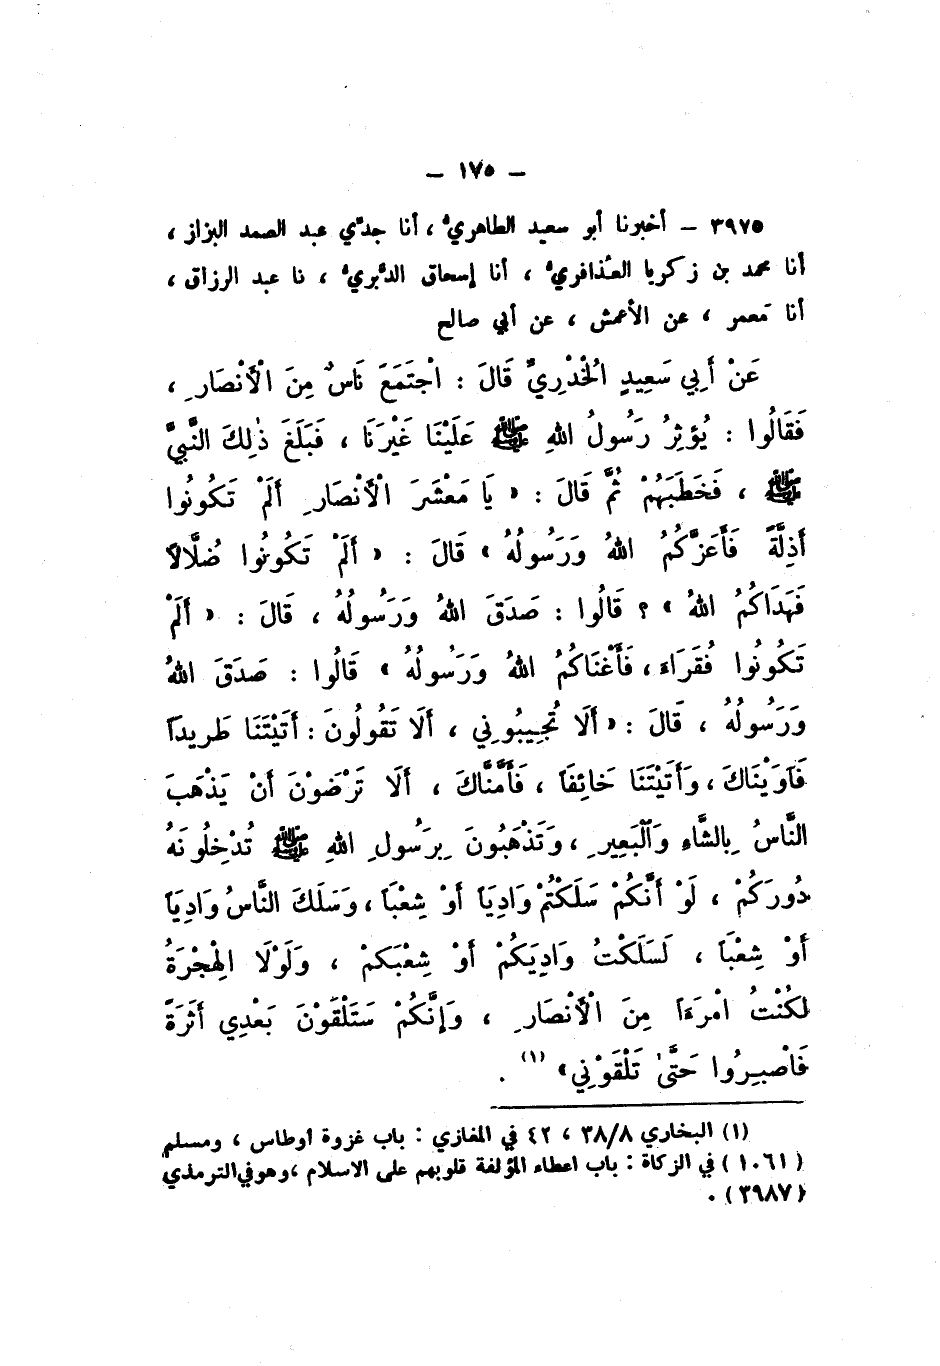 – ١٧٥ –
٣٩٧٥ – أخبرنا أبو سعيد الطاهريُّ ، أنا جدّي عبد الصمد البزاز ،
أنا محمد بن زكريا العُذافريُّ ، أنا إسحاق الدَّبريُّ ، نا عبد الرزاق ،
أنا مَعمر ، عن الأعمش ، عن أبي صالح
عَنْ أَبِي سَعِيدٍ الْخُدْرِيِّ قَالَ : اجْتَمَعَ نَاسٌ مِنَ الْأَنْصَارِ ،
فَقَالُوا : يُؤثِرُ رَسُولُ اللهِ ﷺ عَلَيْنَا غَيْرَنَا ، فَبَلَغَ ذٰلِكَ النَّبيَّ
ﷺ ، فَخَطَبَهُمْ ثُمَّ قَالَ : « يَا مَعْشَرَ الْأَنْصَارِ أَلَمْ تَكُونُوا
أَذِلَّةً فَأَعَزَّكُمُ اللهُ وَرَسُولُهُ » قَالَ : « أَلَمْ تَكُونُوا ضُلَّالاً
فَهَدَاكُمُ اللهُ » ؟ قَالُوا : صَدَقَ اللهُ وَرَسُولُهُ ، قَالَ : « أَلَمْ
تَكُونُوا فُقَرَاءَ ، فَأَغْنَاكُمُ اللهُ وَرَسُولُهُ » قَالُوا : صَدَقَ اللهُ
وَرَسُولُهُ ، قَالَ : « أَلَا تُجِيبُونِي ، أَلَا تَقُولُونَ : أَتَيْتَنَا طَرِيداً
فَآوَيْنَاكَ ، وَأَتَيْتَنَا خَائِفَاً ، فَأَمَّنَّاكَ ، أَلَا تَرْضَوْنَ أَنْ يَذْهَبَ
النَّاسُ بِالشَّاءِ وَالْبَعِيرِ ، وَتَذْهَبُونَ بِرَسُولِ اللهِ ﷺ تُدْخِلُونَهُ
دُورَكُمْ ، لَوْ أَنَّكُمْ سَلَكْتُمْ وَادِيَاً أَوْ شِعْبَاً ، وَسَلَكَ النَّاسُ وَادِيَاً
أَوْ شِعْبَاً ، لَسَلَكْتُ وَادِيَكُمْ أَوْ شِعْبَكُمْ ، وَلَوْلَا الْهِجْرَةُ
لَكُنْتُ امْرَءَاً مِنَ الْأَنْصَارِ ، وَإِنَّكُمْ سَتَلْقَوْنَ بَعْدِي أَثَرَةً
فَاصْبِرُوا حَتَّىٰ تَلْقَوْنِي » (١) .
(١) البخاري ٣٨/٨ ، ٤٢ في المغازي : باب غزوة أوطاس ، ومسلم
( ١٠٦١ ) في الزكاة : باب اعطاء المؤلفة قلوبهم على الاسلام ، وهو في الترمذي
( ٣٩٨٧ ) .